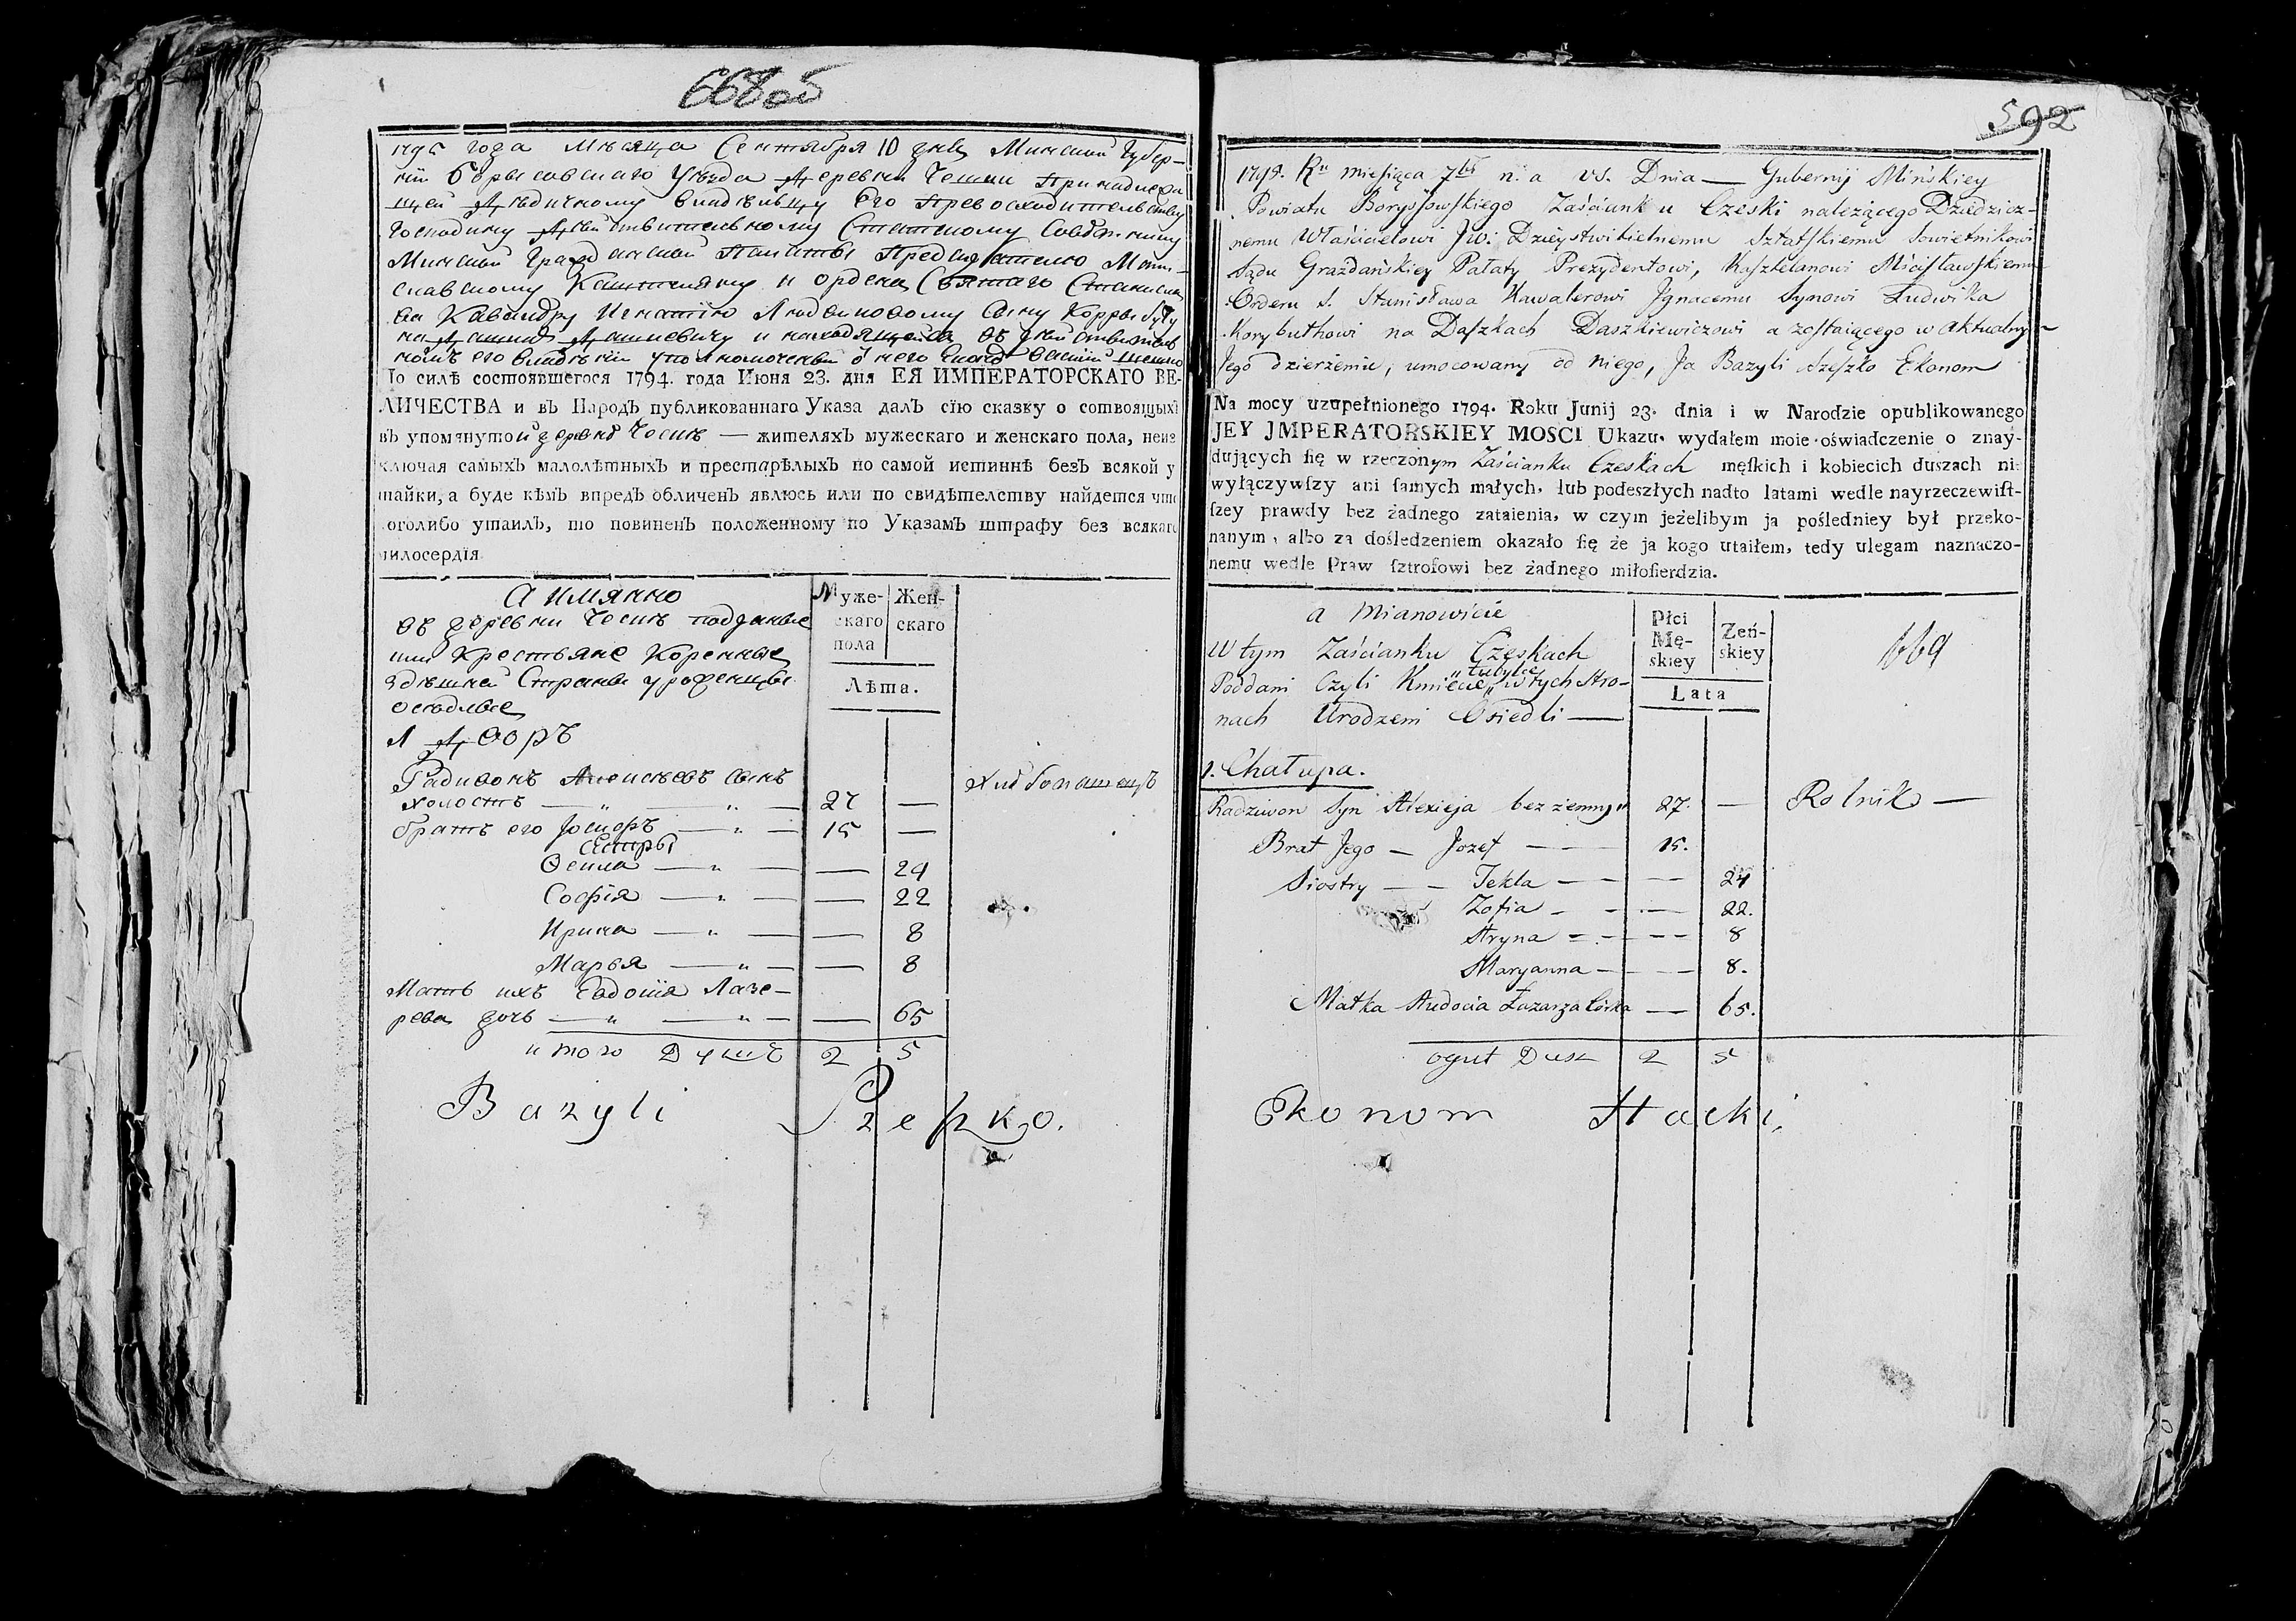 668об
1795 года Мѣсяца Сентября 10 дня Минской Губер-
нїи Борысовскаго Уѣзда Деревни Чески Принадлежа
щей Дѣдичному Владѣльцу Его Превосходительству
Господину Действительному Статскому Совѣтнику
Минской Гражданской Палаты Предсѣдателю Мсти-
славскому Каштеляну и ордена Святаго Станисла
ва Кавалеру Игнатїю Людвиковому Сыну Корры буту
на Дашкахъ Дашкевичу и находящейся въ действитель
номъ его владѣнїи уполномоченный
По силѣ состоявшегося 1794. года Июня 23. дня ЕЯ ИМПЕРАТОРСКАГО ВЕ-
ЛИЧЕСТВА и въ Народъ публикованнаго Указа далъ сїю сказку о сотвоящыхъ
въ упомянутой деревнѣ Ческѣ — жителяхъ мужескаго и женскаго пола, неиз
ключая самыхъ малолѣтныхъ и престарѣлыхъ по самой истиннѣ безъ всякой у
тайки, а буде кѣмъ впредъ обличенъ явлюсь или по свидѣтелству найдется что
оголибо утаилъ, то повиненъ положенному по Указамъ штрафу без всякаго
милосердїя
А имянно
въ деревни Ческѣ подданые
или Крестьяне Коренные
здѣшней Страны уроженцы
оседлые
Муже-
скаго
пола
Жен-
скаго
Лѣта.
1 Дворъ
Радивонъ Алексѣевъ сынъ Хлѣбопашецъ
холостъ — „ — „ — 27 —
братъ его Іосифъ — „ — 15 —
Сестры
Ѳекла — „ — — 24
Софїя — „ — — 22
Ирина — „ — — 8
Марья — „ — — 8
Мать ихъ Евдокїя Лазе-
рева дочь — „ — „ — — 65
итого Душъ 2 5
Bazyli Szeszko.
592
1795. Ru miesiąca 7bra n. a vs. Dnia — Gubernij Mińskiey
Powiatu Boryssowskiego Zaścianku Czeski należącego Dziedzicz-
nemu Właścicielowi Jw: Dzieystwitielnemu Sztatskiemu Sowietnikowi
Sądu Grażdańskiey Pałaty Prezydentowi, Kasztelanowi Mścisławskiemu
Orderu S. Stanisława Kawalerowi Jgnacemu Synowi Ludwika
Korybuthowi na Daszkach Daszkiewiczowi a zostaiącego w aktualnym
Jego dzierżeniu, umocowany od niego, Ja Bazyli Szeszko Ekonom
Na mocy uzupełnionego 1794. Roku Junij 23. dnia i w Narodzie opublikowanego
JEY JMPERATORSKIEY MOSCI Ukazu, wydałem moie oświadczenie o znay-
dujących ſię w rzeczonym Zaścianku Czeskach męſkich i kobiecich duszach nie
wyłączywſzy ani ſamych małych, lub podeszłych nadto latami wedle nayrzeczewiſt-
ſzey prawdy bez żadnego zataienia, w czym jeżelibym ja poſledniey był przeko-
nanym, albo za dośledzeniem okazało ſię że ja kogo utaiłem, tedy ulegam naznaczo-
nemu wedle Praw ſztrofowi bez żadnego miłoſierdzia.
a Mianowicie
W tym Zaścianku Czeskach
„tubylce„
Poddani Czyli Kmiecie w tych Stro-
nach Urodzeni Osiedli —
Płci
Mę-
skiey
Zeń-
skiey
Lata
669
1. Chałupa.
Radziwon Syn Alexieja bezżenny 27. — Rolnik —
Brat Jego — Jozef — 15.
Siostry — — Tekla — — — 24
Zofia — — — 22.
Aryna — — — 8
Maryanna — — 8.
Matka Audocia Łazarza Córka — 65.
oguł Dusz 2 5
Ekonom Hacki,